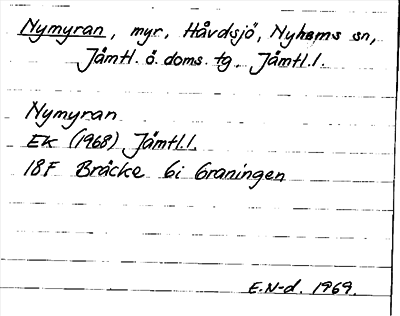 Nymyran, myr, Håvdsjö, Nyhems sn,
Jämtl. ö. doms. tg Jämtl. l.
Nymyran
Ek (1968) Jämtl. l.
18F Bräcke 6i Graningen
E.N-d. 1969.